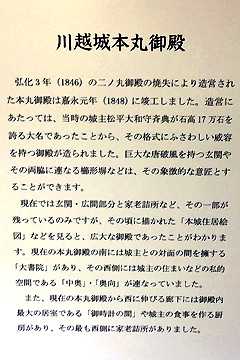 川越城本丸御殿
弘化3年（1846）の二ノ丸御殿の焼失により造営され
た本丸御殿は嘉永元年（1848）に竣工しました。造営に
あたっては、当時の城主松平大和守斉典が石高17万石を
誇る大名であったことから、その格式にふさわしい威容
を持つ御殿が造られました。巨大な唐破風を持つ玄関や
その両脇に連なる櫛形塀などは、その象徴的な意匠とす
ることができます。
現在では玄関・広間部分と家老詰所など、その一部が
残っているのみですが、その頃に描かれた「本城住居絵
図」などを見ると、広大な御殿であったことがわかりま
す。現在の本丸御殿の南には城主との対面の間を擁する
「大書院」があり、その西側には城主の住まいなどの私的
空間である「中奥」・「奥向」が連なっていました。
また、現在の本丸御殿から西に伸びる廊下には御殿内
最大の居室である「御時計の間」や城主の食事を作る厨
房があり、その最も西側に家老詰所がありました。